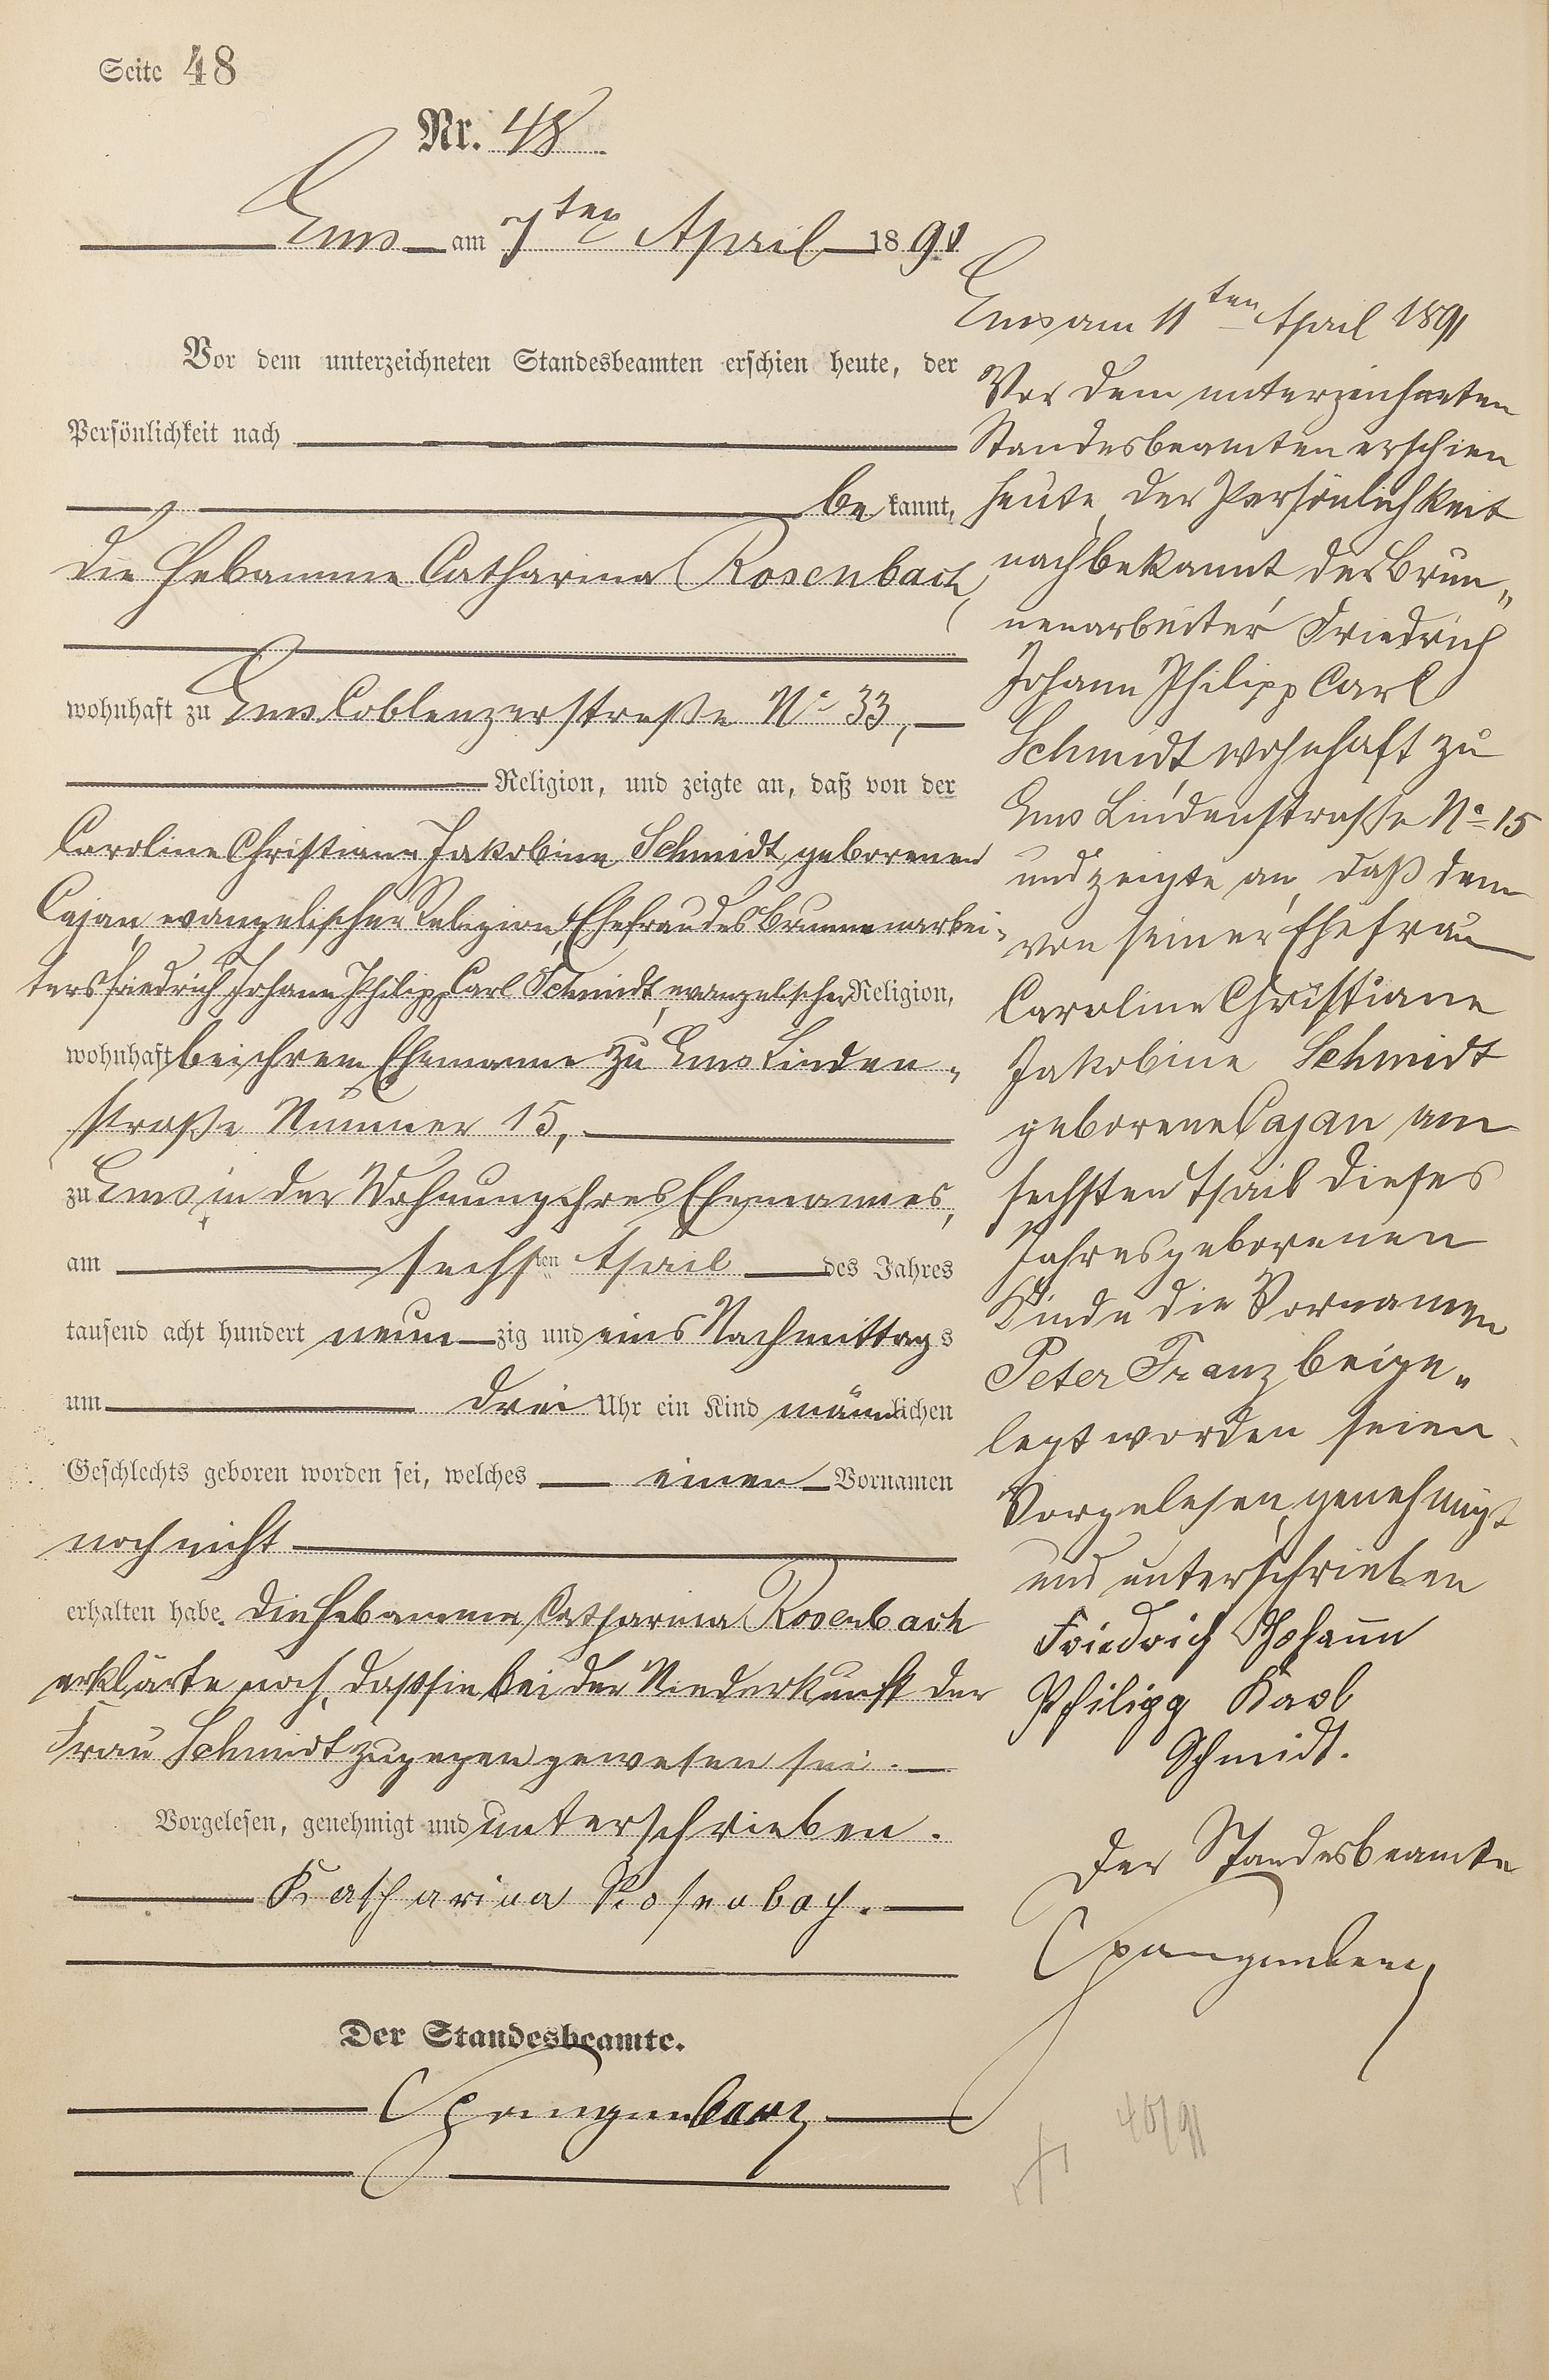 Seite 48
Nr. 48
Ems am 7ten April 1891
Vor dem unterzeichneten Standesbeamten erschien heute, der
Persönlichkeit nach
bekannt,
die Hebamme Catharina Rosenbach,
wohnhaft zu Ems Coblenzerstraße No 33,
Religion, und zeigte an, daß von der
Caroline Christiane Jakobine Schmidt geborenen
Cajan, evangelischer Religion, Ehefrau des Brunnenarbei-
ters Friedrich Johann Philipp Carl Schmidt, evangelischer Religion,
wohnhaft bei ihrem Ehemanne zu Ems Linden-
straße Nummer 15,
zu Ems, in der Wohnung ihres Ehemannes,
am sechsten April des Jahres
tausend acht hundert neunzig und eins Nachmittags
um drei Uhr ein Kind männlichen
Geschlechts geboren worden sei, welches einen Vornamen
noch nicht
erhalten habe. Die Hebamme Catharina Rosenbach
erklärte noch, daß sie bei der Niederkunft der
Frau Schmidt zugegen gewesen sei.
Vorgelesen, genehmigt und unterschrieben.
Katharina Rosenbach.
Der Standesbeamte.
Spangenberg
Ems am 11ten April 1891
Vor dem unterzeichneten
Standesbeamten erschien
heute, der Persönlichkeit
nach bekannt, der Brun-
nenarbeiter Friedrich
Johann Philipp Carl
Schmidt, wohnhaft zu
Ems Lindenstraße No 15
und zeigte an, daß dem
von seiner Ehefrau
Caroline Christiane
Jakobine Schmidt
geborene Cajan am
sechsten April dieses
Jahres geborenen
Kinde die Vornamen
Peter Franz beige-
legt worden seien.
Vorgelesen, genehmigt
und unterschrieben
Friedrich Johann
Philipp Karl
Schmidt.
Der Standesbeamte
Spangenberg